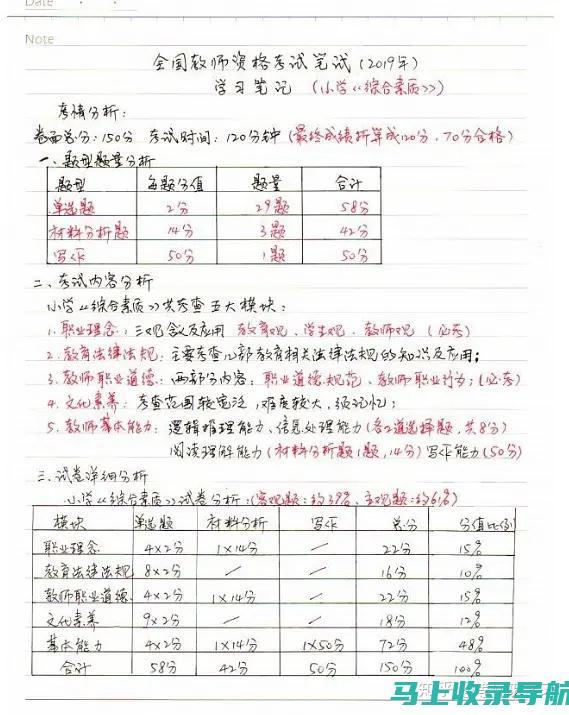 Date
Note
全国教师资格考试笔试(2019年)
学习笔记 (小学《综合素质》)
考情分析:
卷面总分:150分 考试时间:120分钟(最终成绩折算成120分,70分合格)
一、题型题量分析
题型 每题分值 题量 合计
单选题 2分 29题 58分
材料分析题 14分 3题 42分
写作 50分 1题 50分
二、考试内容分析
小学《综合素质》共考查五大模块:
1.职业理念:三观含义及应用 教育观、学生观、教师观 (必考)
2.教育法律法规:主要考查几部教育相关法律法规的知识及应用;
3.教师职业道德:两部分内容:职业道德规范、教师职业行为;(必考)
4.文化素养:考查范围较宽泛,难度较大,须记忆;
5.教师基本能力:逻辑推理能力、信息处理能力(各2道选择题,共8分)
阅读理解能力(材料分析题1题,14分)写作能力(50分)
三、试卷详细分析
小学《综合素质》试卷分析:(客观题:约39%、主观题:约61%)
模块 单选题 材料分析 写作 总分 分值比例
职业理念 4×2分 1×14分 / 22分 15%
教育法律法规 8×2分 / / 16分 10%
教师职业道德 4×2分 1×14分 / 22分 15%
文化素养 9×2分 / / 18分 12%
基本能力 4×2分 1×14分 1×50分 72分 48%
合计 58分 42分 50分 150分 100%
马上收录导航